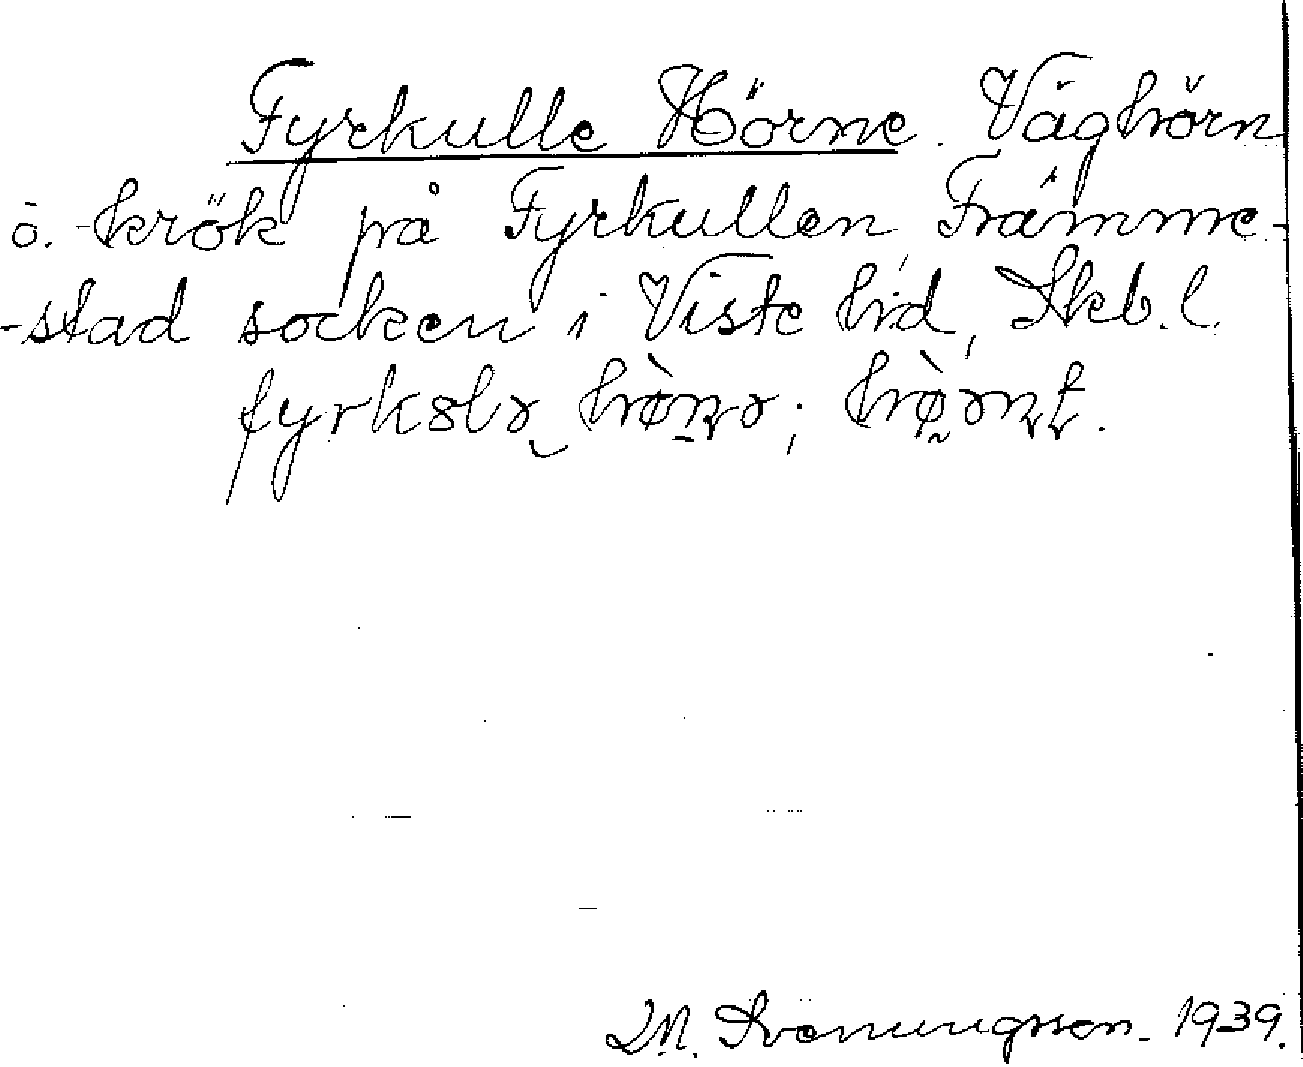 Fyrkulle Hörne. Väghörn
o. -krök på Fyrkullen, Främme-
-stad socken i Viste hd, Skb. l.
M. Svenungsson. 1939.